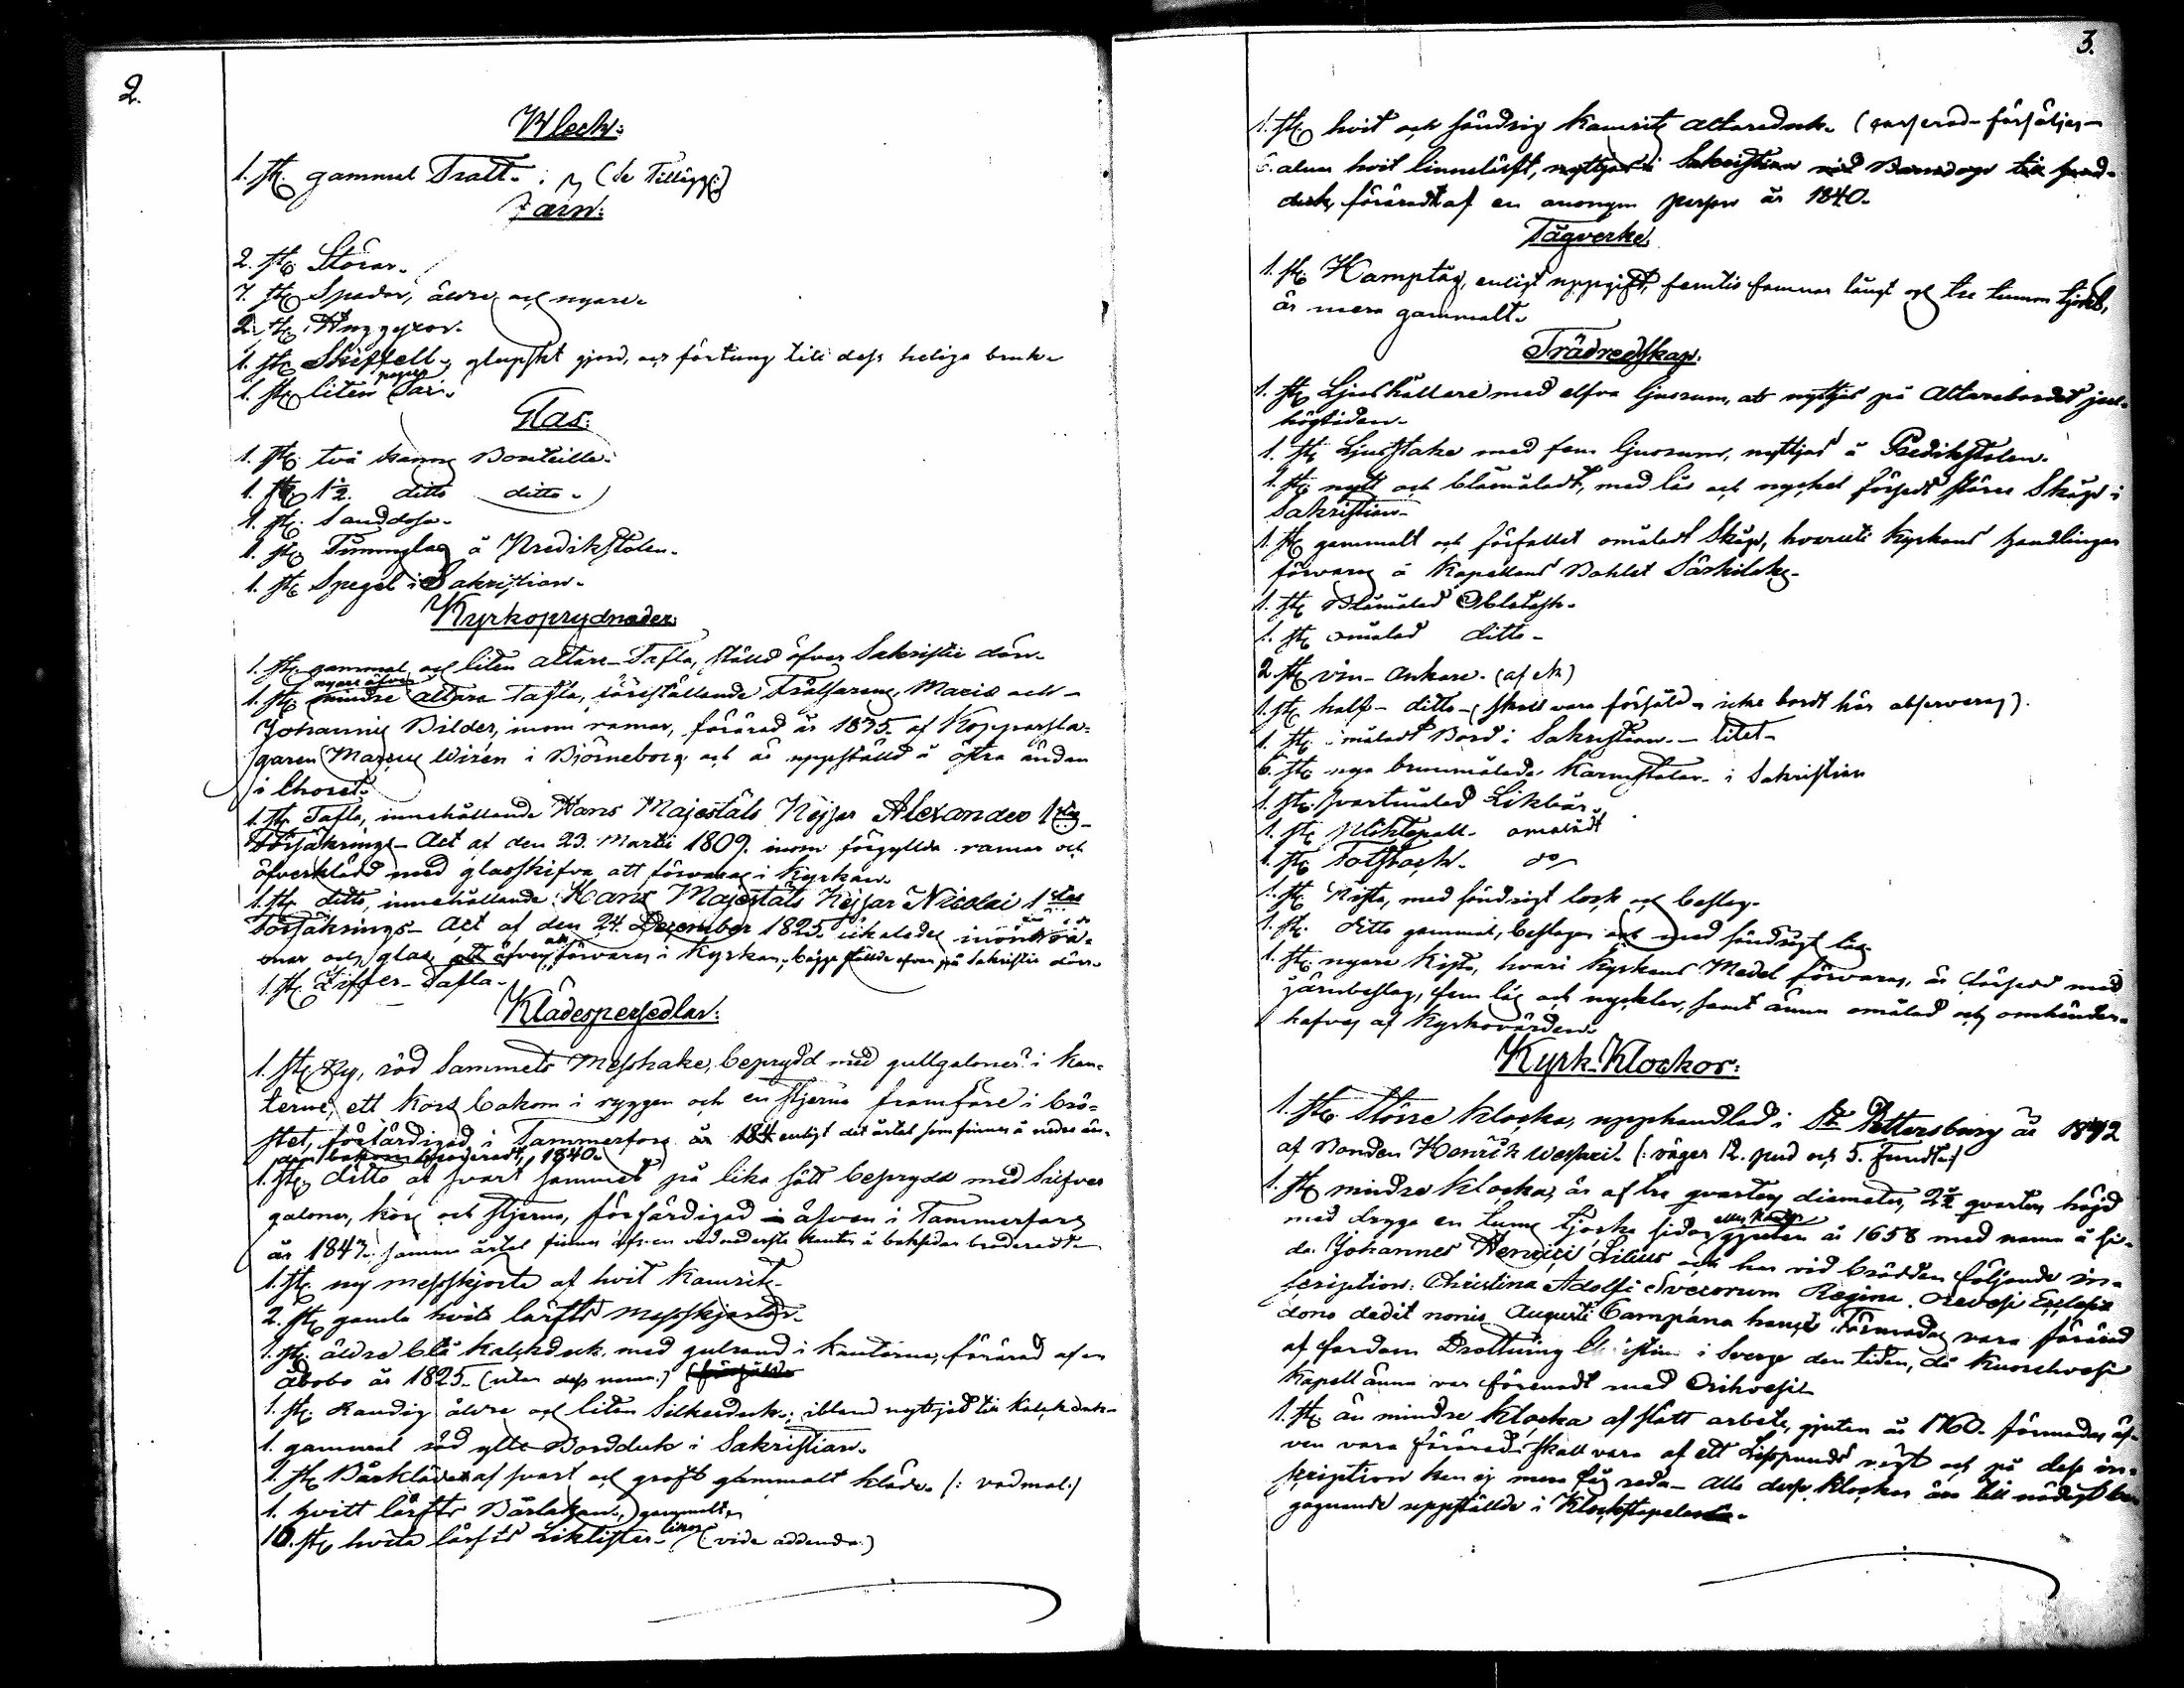 2.
Bleck:
1. st. gammal Tratt. (se Tillägg:)
Jern:
2. st. Störar.
7. st. Spadar, äldre och nyare.
2. st.
1. st. gjord, och för tung till dess heliga bruk.
1. st. liten Sax.
papers
Glas:
1. st. två kanns Bouteille.
1. st. 1½. ditto ditto.
1. st. Sanddosa.
1. st. Timmglas å Predikstolen.
1. st. Spegel i Sakristian.
Kyrkoprydnader:
1. st. gammal och liten altare-Tafla, ställd öfver Sakristie dörr.
nyare äfven
1. st. mindre altare Tafla, föreställande Frälsarens, Mariæ och
Johannis Bilder, inom ramar, förärad år 1835 af Kopparsla-
garen Wirén i Björneborg och är uppställd å östra ändan
i Choret.
1. st. Tafla, innehållande Hans Majestäts Kejsar Alexander 1stes
Försäkrings-Act af den 23. Martii 1809. inom förgyllda ramar och
öfverklädd med glasskifva, att förvaras i Kyrkan.
1. st. ditto, innehållande Hans Majestäts Kejsar Nicolai 1stes
Försäkrings-Act af den 24. December 1825. likaledes inom ra-
mar och glas, att förvaras i Kyrkan, bägge ställde ofvan på Sakristie dörr.
1. st. Ziffer-Tafla.
Klädespersedlar:
1. st. Ny, röd Sammets Messhake, beprydd med gullgaloner i kan-
terne, ett kors bakom i ryggen och en stjerna framföre i brö-
stet, förfärdigad i Tammerfors år 184 enligt det årtal som finnes å nedre än-
dan bakom broderadt, 1840.
1. st. ditto af svart sammet på lika sätt beprydd med Silfver
galoner, kors och stjerna, förfärdigad äfven i Tammerfors
år 1847. samma årtal finnes äfven vid nedersta kanten å baksidan broderadt.
1. st. ny messkjorta af hvit Kamrik.
2. st. gamla hvita lärfts messkjortor.
1. st. äldre blå kalkduk med gulrand i kanterna, förärad af en
Åbobo år 1825. (utan dess namn.)
1. st. Randig äldre och liten Silkesduk, ibland nyttjad till Kalkduk.
1. gammal röd ylle Bordduk i Sakristian.
1. st. Bårkläde af svart och groft gammalt kläde. (: vadmal:)
1. hvitt lärfts Bårlakan, gammalt.
10. st. hvita lärfts (vide addenda.)
3.
1. st. hvit och söndrig Kamriks altareduk.
6. alnar hvit linnelärft, nyttjas i Sakristian
duk, föräradt af en anonym person år 1840.
Tågverke.
1. st. Hamptåg, enligt uppgift, femtio famnar långt och tre tummar tjokt,
är mera gammalt.
Trädredskap.
1. st. Ljushållare med elfva ljusrum, att nyttjas på Altarebordet jul-
högtiden.
1. st. Ljusstake med fem ljusrum, nyttjas å Predikstolen.
1. st. nytt och blåmåladt, med lås och nyckel försedt större Skåp i
Sakristian.
1. st. gammalt och förfallet omåladt Skåp, hvaruti Kyrkans handlingar
förvaras å Kapellans Bohlet Särkilaks.
1. st. Blåmålad Oblatask.
1. st. omålad ditto.
2. st. vin-ankare. (af ek)
1. st. half-ditto (skall vara försåld - icke bordt här observeras).
1. st. omåladt Bord i Sakristian. - litet.
6. st. nya brunmålade Karmstolar i Sakristian
1. st. svartmålad Likbår.
1. st. Pliktepall. omåladt
1. st. Fotstock. do
1. st. Kista, med söndrigt lock och beslag.
1. st. ditto gammal, beslagen och med söndrigt lås.
1. st. nyare Kista, hvari Kyrkans Medel förvaras, är försedd med
järnbeslag, fem lås och nycklar, samt ännu omålad och omhänder-
hafves af Kyrkovärden.
Kyrk-Klockor:
1. st. Större klocka, upphandlad i St. Pettersburg år 1842
af Bonden Henrik (: väger 12. pud och 5. :)
1. st. mindre klocka, är af tre qvarters diameter, 2½ qvarters höjd
med dryga en tums tjocka sidor, gjuten år 1658 med namn å si-
da Johannes Henrici Lilius och har vid brädden följande in-
scription: Christina Adolfi Svecorum Regina. Orevesi Eclesiæ
dono dedit nonis Augusti Campána hancce förmodas vara förärad
af fordom Drottning Christina i Sverge den tiden, då Kuorehvesi
Kapell ännu var förenadt med Orihvesi.
1. st. än mindre klocka af slätt arbete, gjuten år 1760. förmodas äf-
ven vara förärad. skall vara af ett Lispunds vigt och på dess in-
scription kan ej mera fås reda. Alla dessa klockor äro till nödigt be-
gagnande uppställde i Klockstapeln.